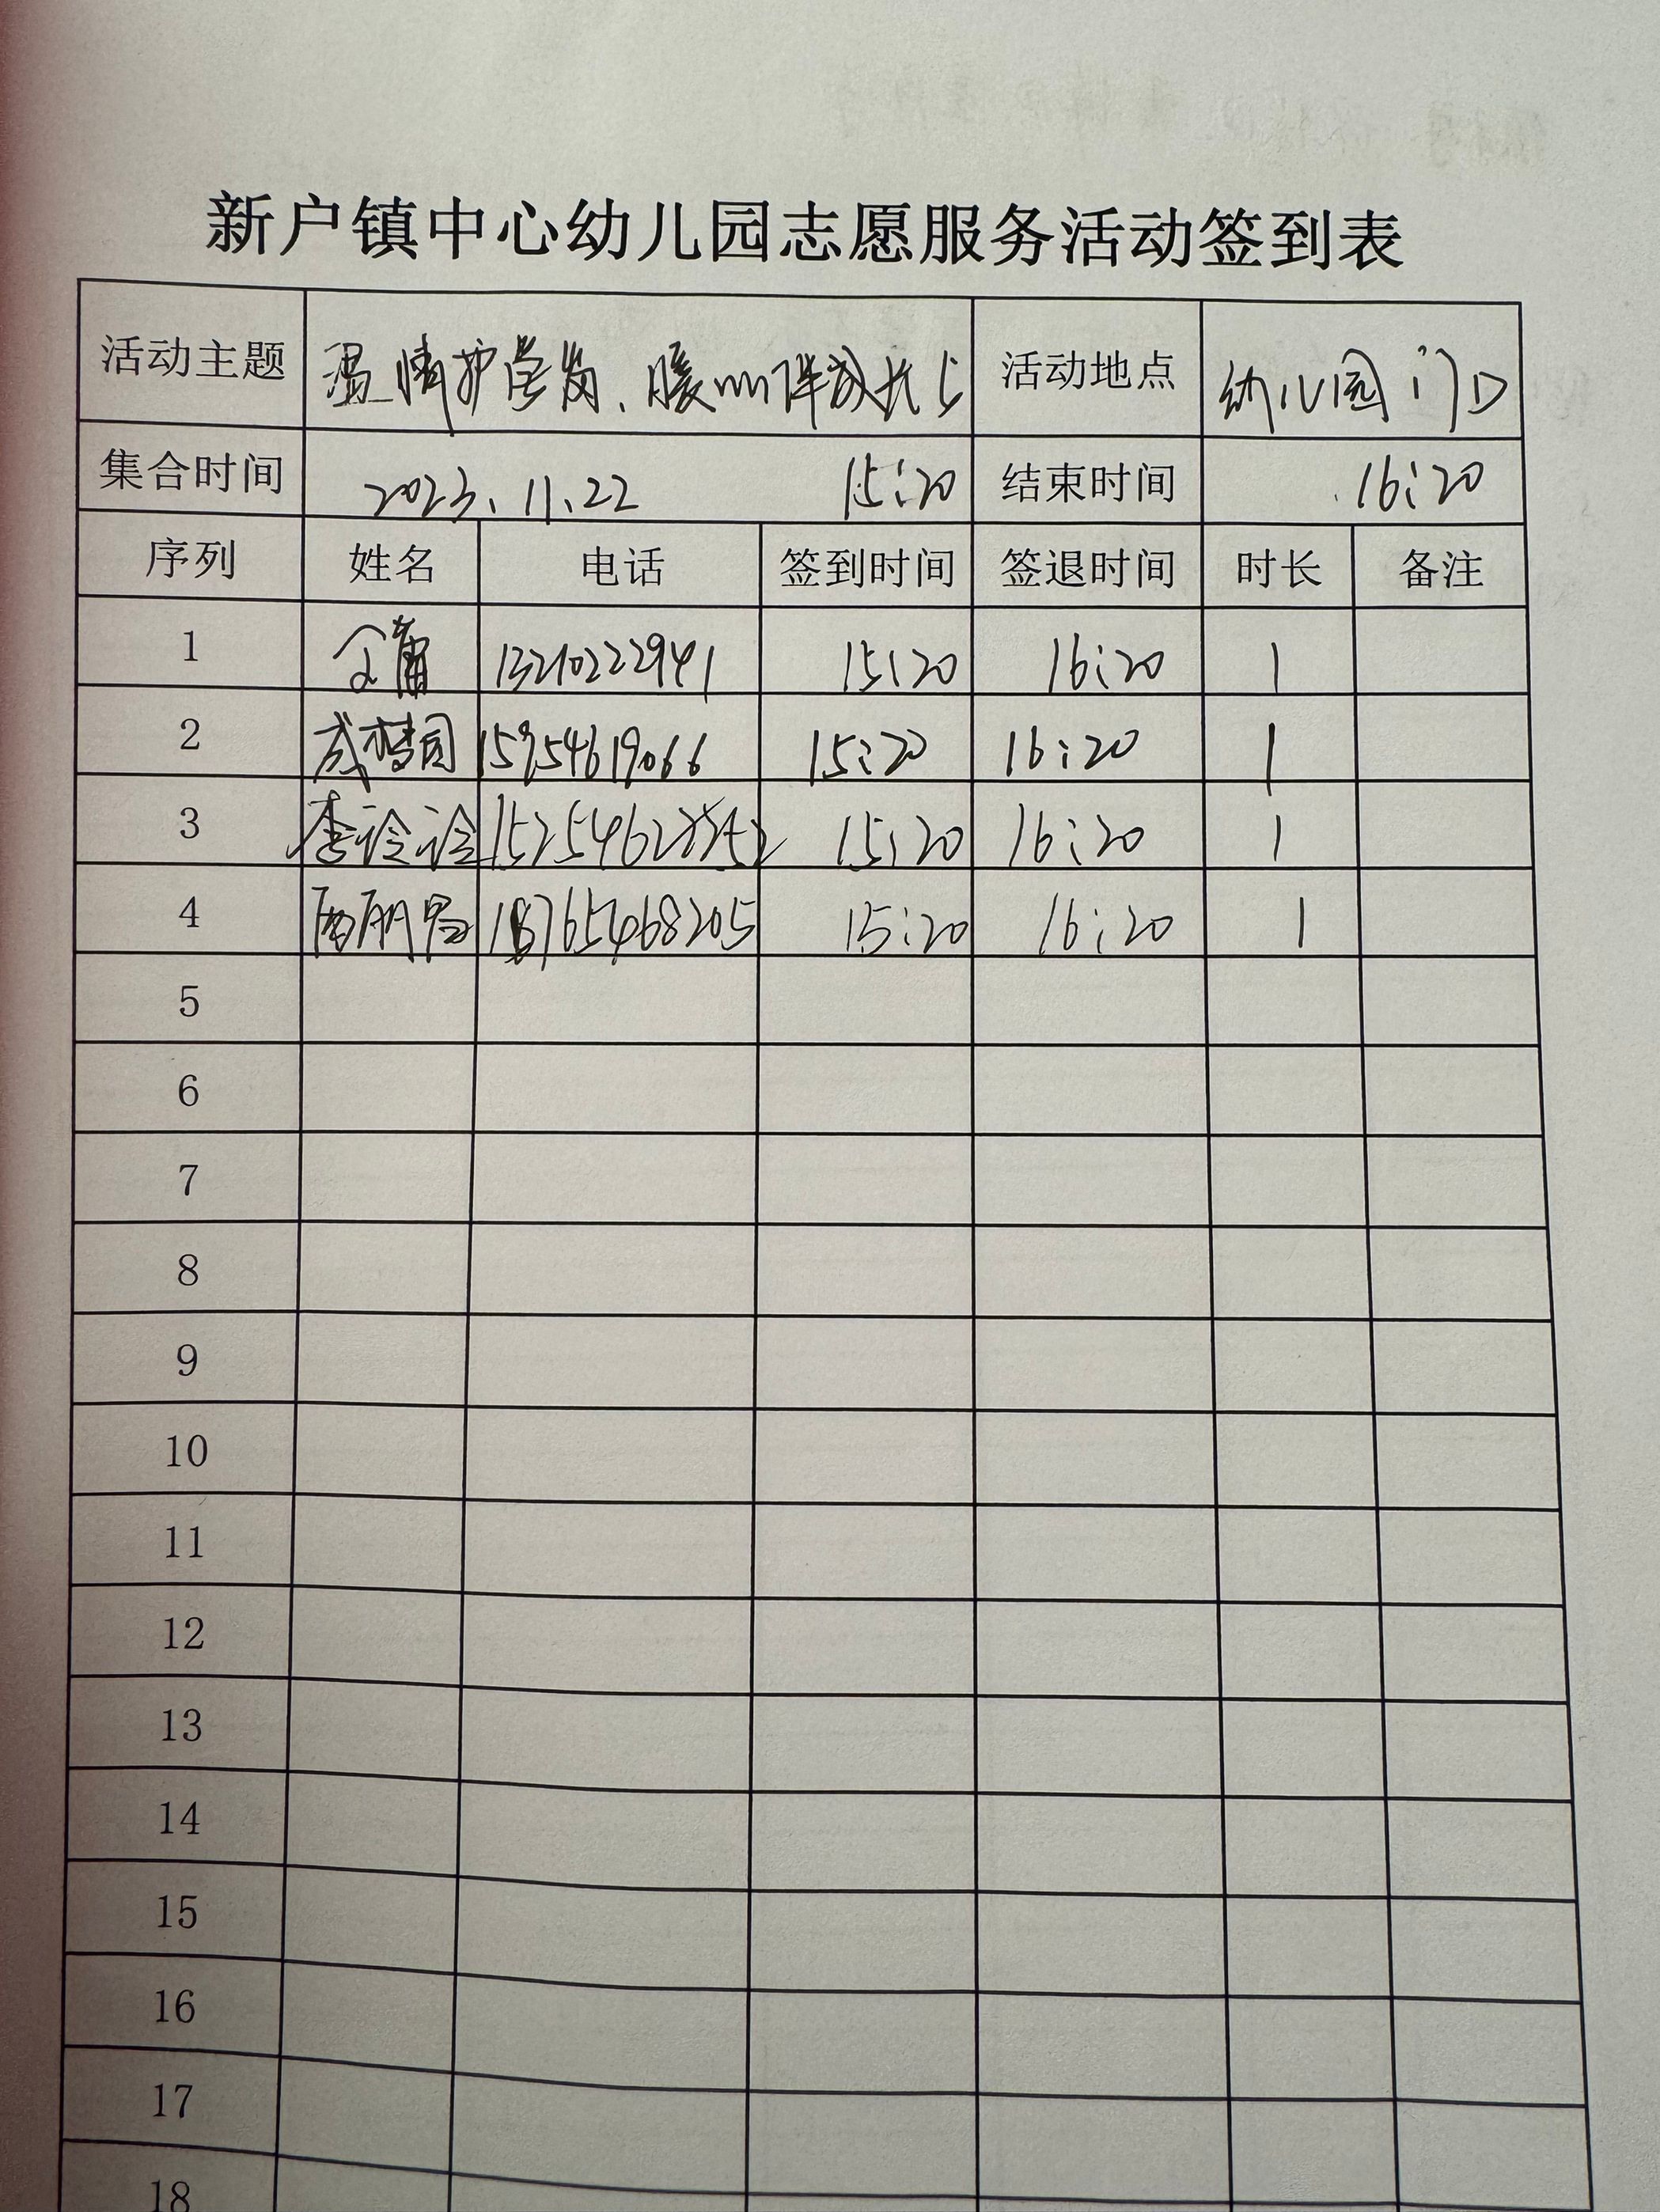 新户镇中心幼儿园志愿服务活动签到表
活动主题 温情护学岗、暖心伴成长 活动地点 幼儿园门口
集合时间 2023、11、22 15:20 结束时间 16:20
序列 姓名 电话 签到时间 签退时间 时长 备注
1 13210222941 15:20 16:20 1
2 成梦园 15954619066 15:20 16:20 1
3 李诊诊 15:20 16:20 1
4 18765468205 15:20 16:20 1
5
6
7
8
9
10
11
12
13
14
15
16
17
18